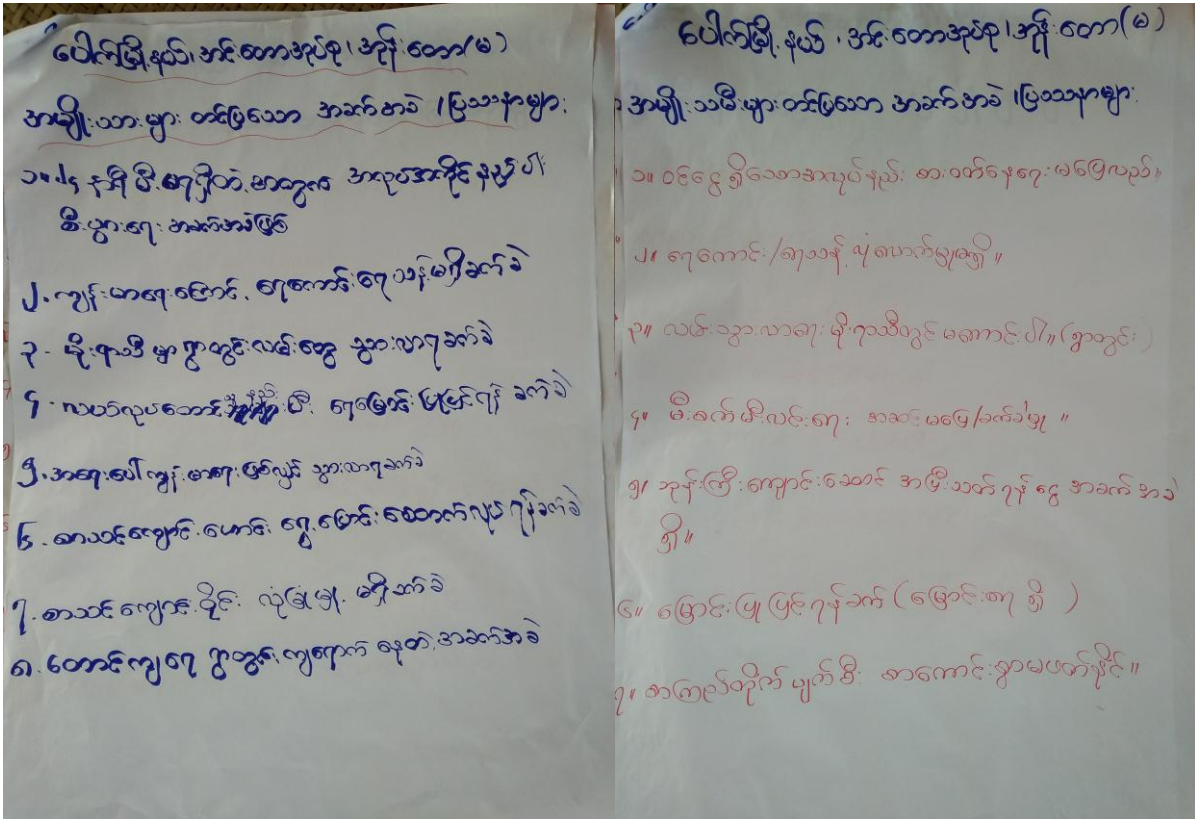 ပေါက်မြို့နယ်၊ အင်းတောအုပ်စု၊ အုန်းတော(မ)
အမျိုးသားများ တင်ပြသော အခက်အခဲ/ပြဿနာများ
၁။ ၂၄ နာရီ မီးရရှိတဲ့အတွက် အလုပ်အကိုင်နည်းပါး
စီးပွားရေး အခက်အခဲဖြစ်
၂. ကျန်းမာရေးကြောင့် ရေကောင်းရေသန့်မရှိခက်ခဲ
၃. မိုးရာသီမှာ ရွာတွင်းလမ်းတွေ သွားလာရခက်ခဲ
၄. လယ်လုပ်တောင် နည်းပြီး ရေမြောင်းပြုပြင်ရန် ခက်ခဲ
၅. အရေးပေါ်ကျန်းမာရေးဖြစ်လျှင် သွားလာရခက်ခဲ
၆. စာသင်ကျောင်းဟောင်း ရွှေ့ပြောင်းဆောက်လုပ်ရန်ခက်ခဲ
၇. စာသင်ကျောင်းဝိုင်း လုံခြုံမှု မရှိခက်ခဲ
၈. တောင်ကျရေ ရွာတွင်းကျရောက်နေတဲ့အခက်အခဲ
ပေါက်မြို့နယ်၊ အင်းတောအုပ်စု၊ အုန်းတော(မ)
အမျိုးသမီးများတင်ပြသော အခက်အခဲ/ပြဿနာများ
၁။ ဝင်ငွေရှိသောအလုပ်နည်း စားဝတ်နေရေးမပြေလည်။
၂။ ရေကောင်း/ရေသန့် လုံလောက်မှုမရှိ။
၃။ လမ်းသွားလာရေး မိုးရာသီတွင် မကောင်းပါ။ (ရွာတွင်း)
၄။ မီးဖက်မီးလင်းရေး အဆင်မပြေ/ခက်ခဲမှု။
၅။ ဘုန်းကြီးကျောင်းဆောင် အပြီးသတ်ရန် ငွေ အခက်အခဲ
ရှိ။
၆။ မြောင်းပြုပြင်ရန်ခက် (မြောင်းရေရှိ)
၇။ စာကြည့်တိုက်ပျက်စီး စာကောင်းစွာမဖတ်နိုင်။